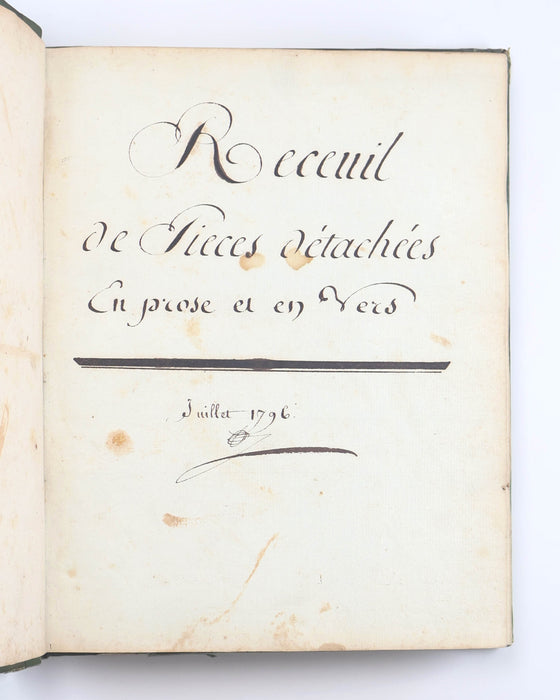 Receuil
de Pieces détachées
En prose et en Vers
Juillet 1796